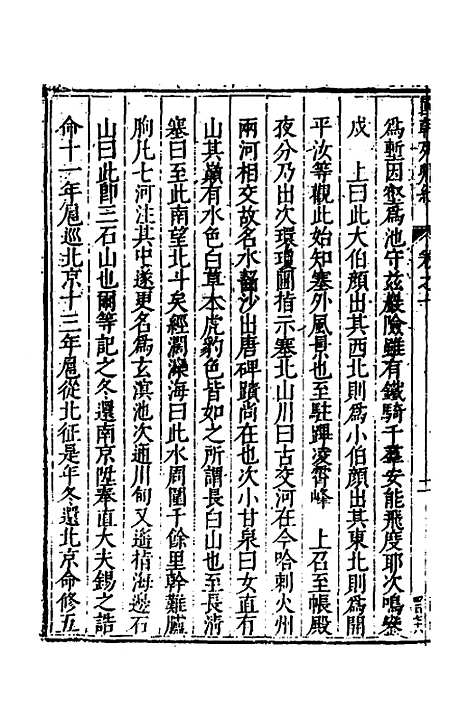 為塹因壑為池守茲巖險雖有鐵騎千羣安能飛度耶次鳴鑾
戍　上曰此大伯顏出其西北則為小伯顏出其東北則為開
平汝等觀此始知塞外風景也至駐蹕凌霄峰　上召至帳殿
夜分乃出次環瓊圃指示塞北山川曰古交河在今哈剌火州
兩河相交故名水齧沙出唐碑蹟尚在也次小甘泉曰女直有
山其巔有水色白草木虎豹色皆如之所謂長白山也至長清
塞曰至此南望北斗矣經濶灤海曰此水周圍千餘里斡難臚
朐凡七河注其中遂更名為玄滇池次通川甸又遥指海邊石
山曰此即三石山也爾等記之冬還南京陞奉直大夫錫之誥
命十一年扈巡北京十三年扈從北征是年冬還北京命修五
卷之十
十一